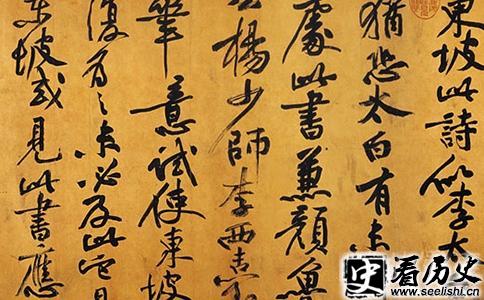 東坡此詩似李太
猶恐太白有未
處此書兼顏魯
公楊少師李西臺
筆意試使東坡
復為之未必及此它日
東坡或見此書應
史 看历史
www.seelishi.cn